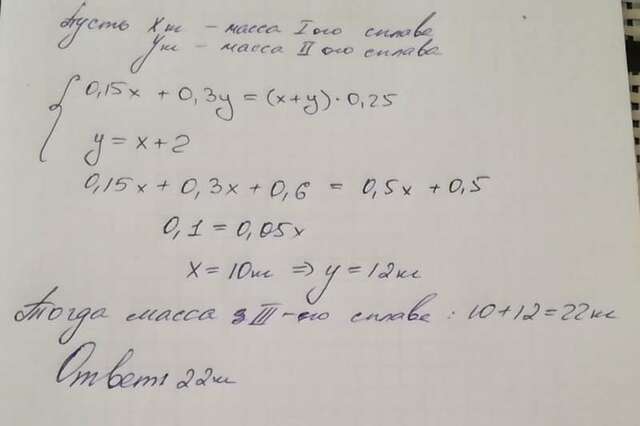 Пусть x кг - масса I ого сплава
y кг - масса II ого сплава
0,15x + 0,3y = (x+y)·0,25
y = x+2
0,15x + 0,3x + 0,6 = 0,5x + 0,5
0,1 = 0,05x
x = 10кг ⇒ y = 12кг
Тогда масса III-его сплава: 10+12=22кг
Ответ: 22кг